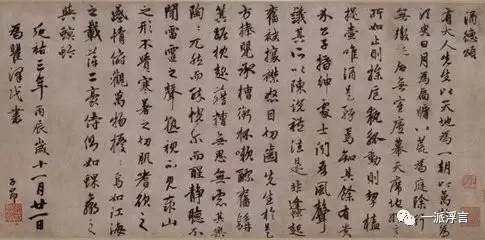 酒德頌
有大人先生以天地為一朝以萬期為
須臾日月為扃牖八荒為庭除行
無轍迹居無室廬幕天席地縱意
所如止則操卮執觚動則挈榼
提壺唯酒是務焉知其餘有貴
介公子搢紳處士聞吾風聲
議其所以陳說禮法是非鋒起
奮袂攘襟怒目切齒先生於是
方捧甖承槽銜杯漱醪奮髯
箕踞枕麴藉糟無思無慮其樂
陶陶兀然而醉恍爾而醒靜聽不
聞雷霆之聲熟視不見泰山
之形不覺寒暑之切肌嗜欲之
感情俯觀萬物擾擾焉如江海
之載浮萍二豪侍側焉如蜾蠃之
與螟蛉
延祐三年丙辰歲十一月廿一日
為瞿澤民書
子昂
一派浮言